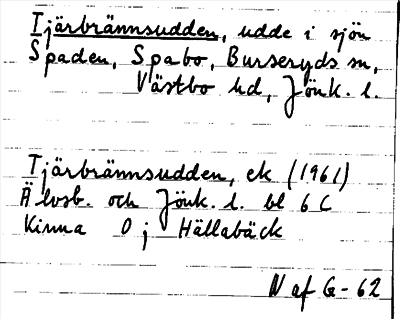 Tjärbrännsudden, udde i sjön
Spaden, Spabo, Burseryds sn,
Västbo hd, Jönk. l.
Tjärbrännsudden, ek (1961)
Älvsb. och Jönk. l. bl 6 C
Kinna O j Hällabäck
N af G-62